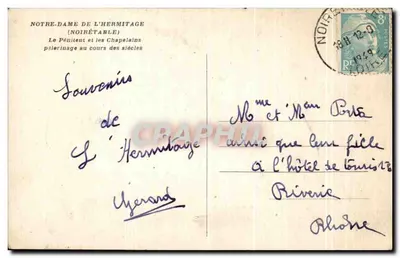 NOTRE-DAME DE L'HERMITAGE
(NOIRÉTABLE)
Le Pénitent et les Chapelains
pèlerinage au cours des siècles
Souvenirs
de
L'Hermitage
Gérard
Mme et Mr
ainsi que leur fille
à l'hôtel de
Riverie
Rhône
CPARAMA